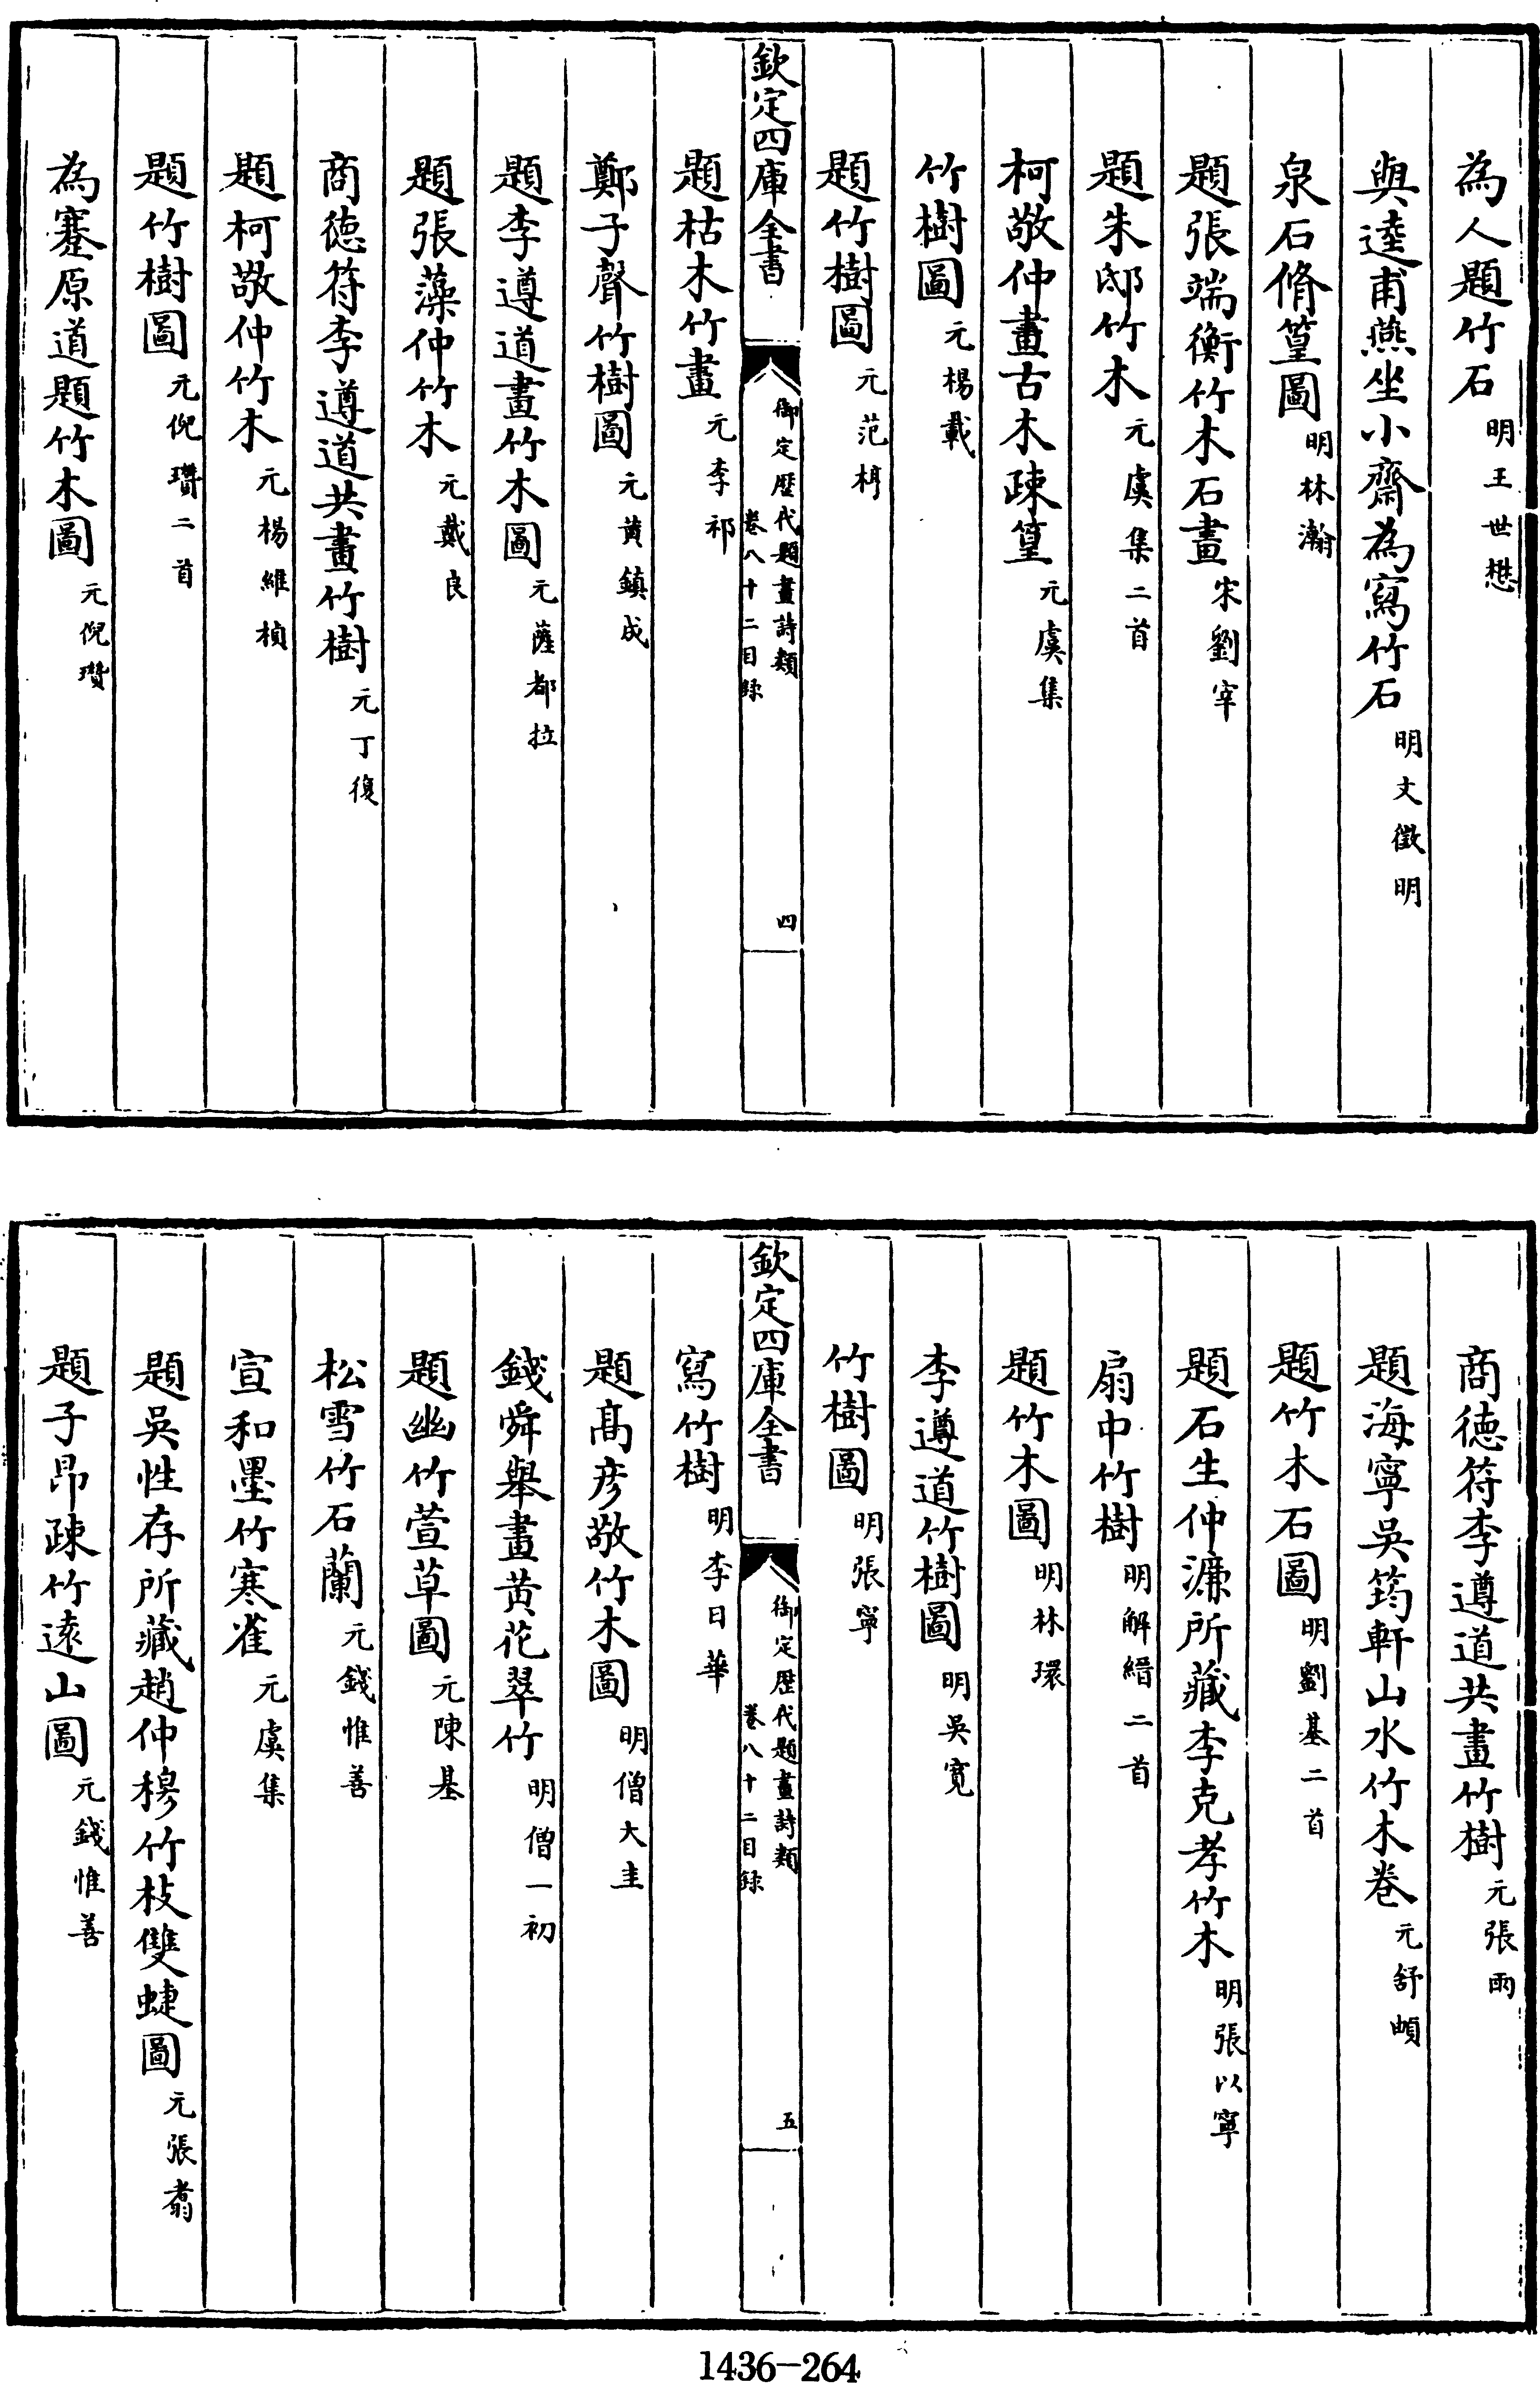 為人題竹石明王世懋
與逵甫燕坐小齋為寫竹石明文徵明
泉石脩篁圖明林瀚
題張端衡竹木石畫宋劉宰
題朱邸竹木元虞集二首
柯敬仲畫古木疎篁元虞集
竹樹圖元楊載
題竹樹圖元范梈
欽定四庫全書
御定歷代題畫詩類
卷八十二目録
四
題枯木竹畫元李祁
鄭子聲竹樹圖元黄鎮成
題李遵道畫竹木圖元薩都拉
題張藻仲竹木元戴良
商徳符李遵道共畫竹樹元丁復
題柯敬仲竹木元楊維楨
題竹樹圖元倪瓚二首
為蹇原道題竹木圖元倪瓚
商徳符李遵道共畫竹樹元張雨
題海寧吳筠軒山水竹木卷元舒頔
題竹木石圖明劉基二首
題石生仲濂所藏李克孝竹木明張以寧
扇中竹樹明解縉二首
題竹木圖明林環
李遵道竹樹圖明吳寬
竹樹圖明張寧
欽定四庫全書
御定歷代題畫詩類
卷八十二目録
五
寫竹樹明李日華
題髙彦敬竹木圖明僧大圭
錢舜舉畫黄花翠竹明僧一初
題幽竹萱草圖元陳基
松雪竹石蘭元錢惟善
宣和墨竹寒雀元虞集
題吳性存所藏趙仲穆竹枝雙蜨圖元張翥
題子昂疎竹逺山圖元錢惟善
1436-264